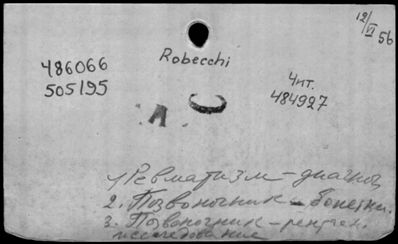 12/VI 56
Robecchi
486066
505195
Чит.
484927
1) Ревматизм - диагноз
2. Позвоночник - болезни.
3. Позвоночник - рентген.
исследование